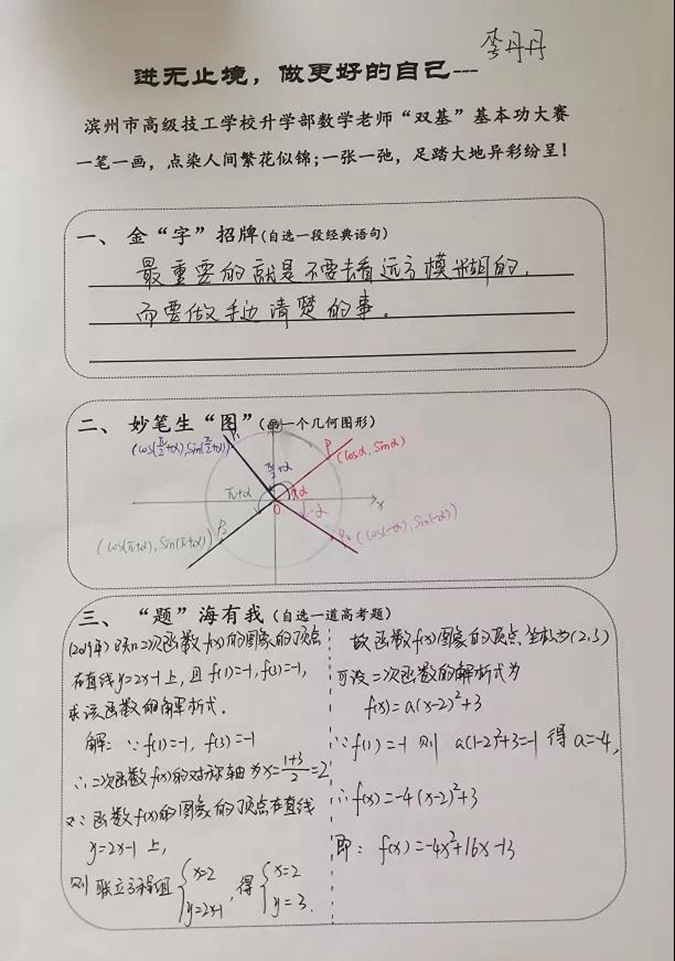 李丹丹
进无止境，做更好的自己---
滨州市高级技工学校升学部数学老师“双基”基本功大赛
一笔一画，点染人间繁花似锦;一张一弛，足踏大地异彩纷呈!
一、 金“字”招牌(自选一段经典语句)
最重要的就是不要去看远方模糊的,
而要做手边清楚的事。
二、 妙笔生“图”(画一个几何图形)
(cos(π/2+α),sin(π/2+α))
P₁
P
(cosα,sinα)
π/2+α
π+α
α
-α
O
x
P₂
(cos(π+α),sin(π+α))
(cos(-α),sin(-α))
三、 “题”海有我 (自选一道高考题)
(2019年)已知二次函数f(x)的图象的顶点
在直线y=2x-1上,且f(1)=-1,f(3)=-1,
求该函数的解析式.
解:∵f(1)=-1, f(3)=-1
∴二次函数f(x)的对称轴为x=(1+3)/2=2
又∵函数f(x)的图象的顶点在直线
y=2x-1上,
则联立方程组{x=2 y=2x-1,得{x=2 y=3.
故函数f(x)图象的顶点坐标为(2,3)
可设二次函数的解析式为
f(x)=a(x-2)²+3
∵f(1)=-1 则 a(1-2)²+3=-1 得a=-4,
∴f(x)=-4(x-2)²+3
即: f(x)=-4x²+16x-13